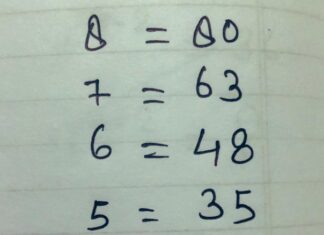 8 = 80
7 = 63
6 = 48
5 = 35